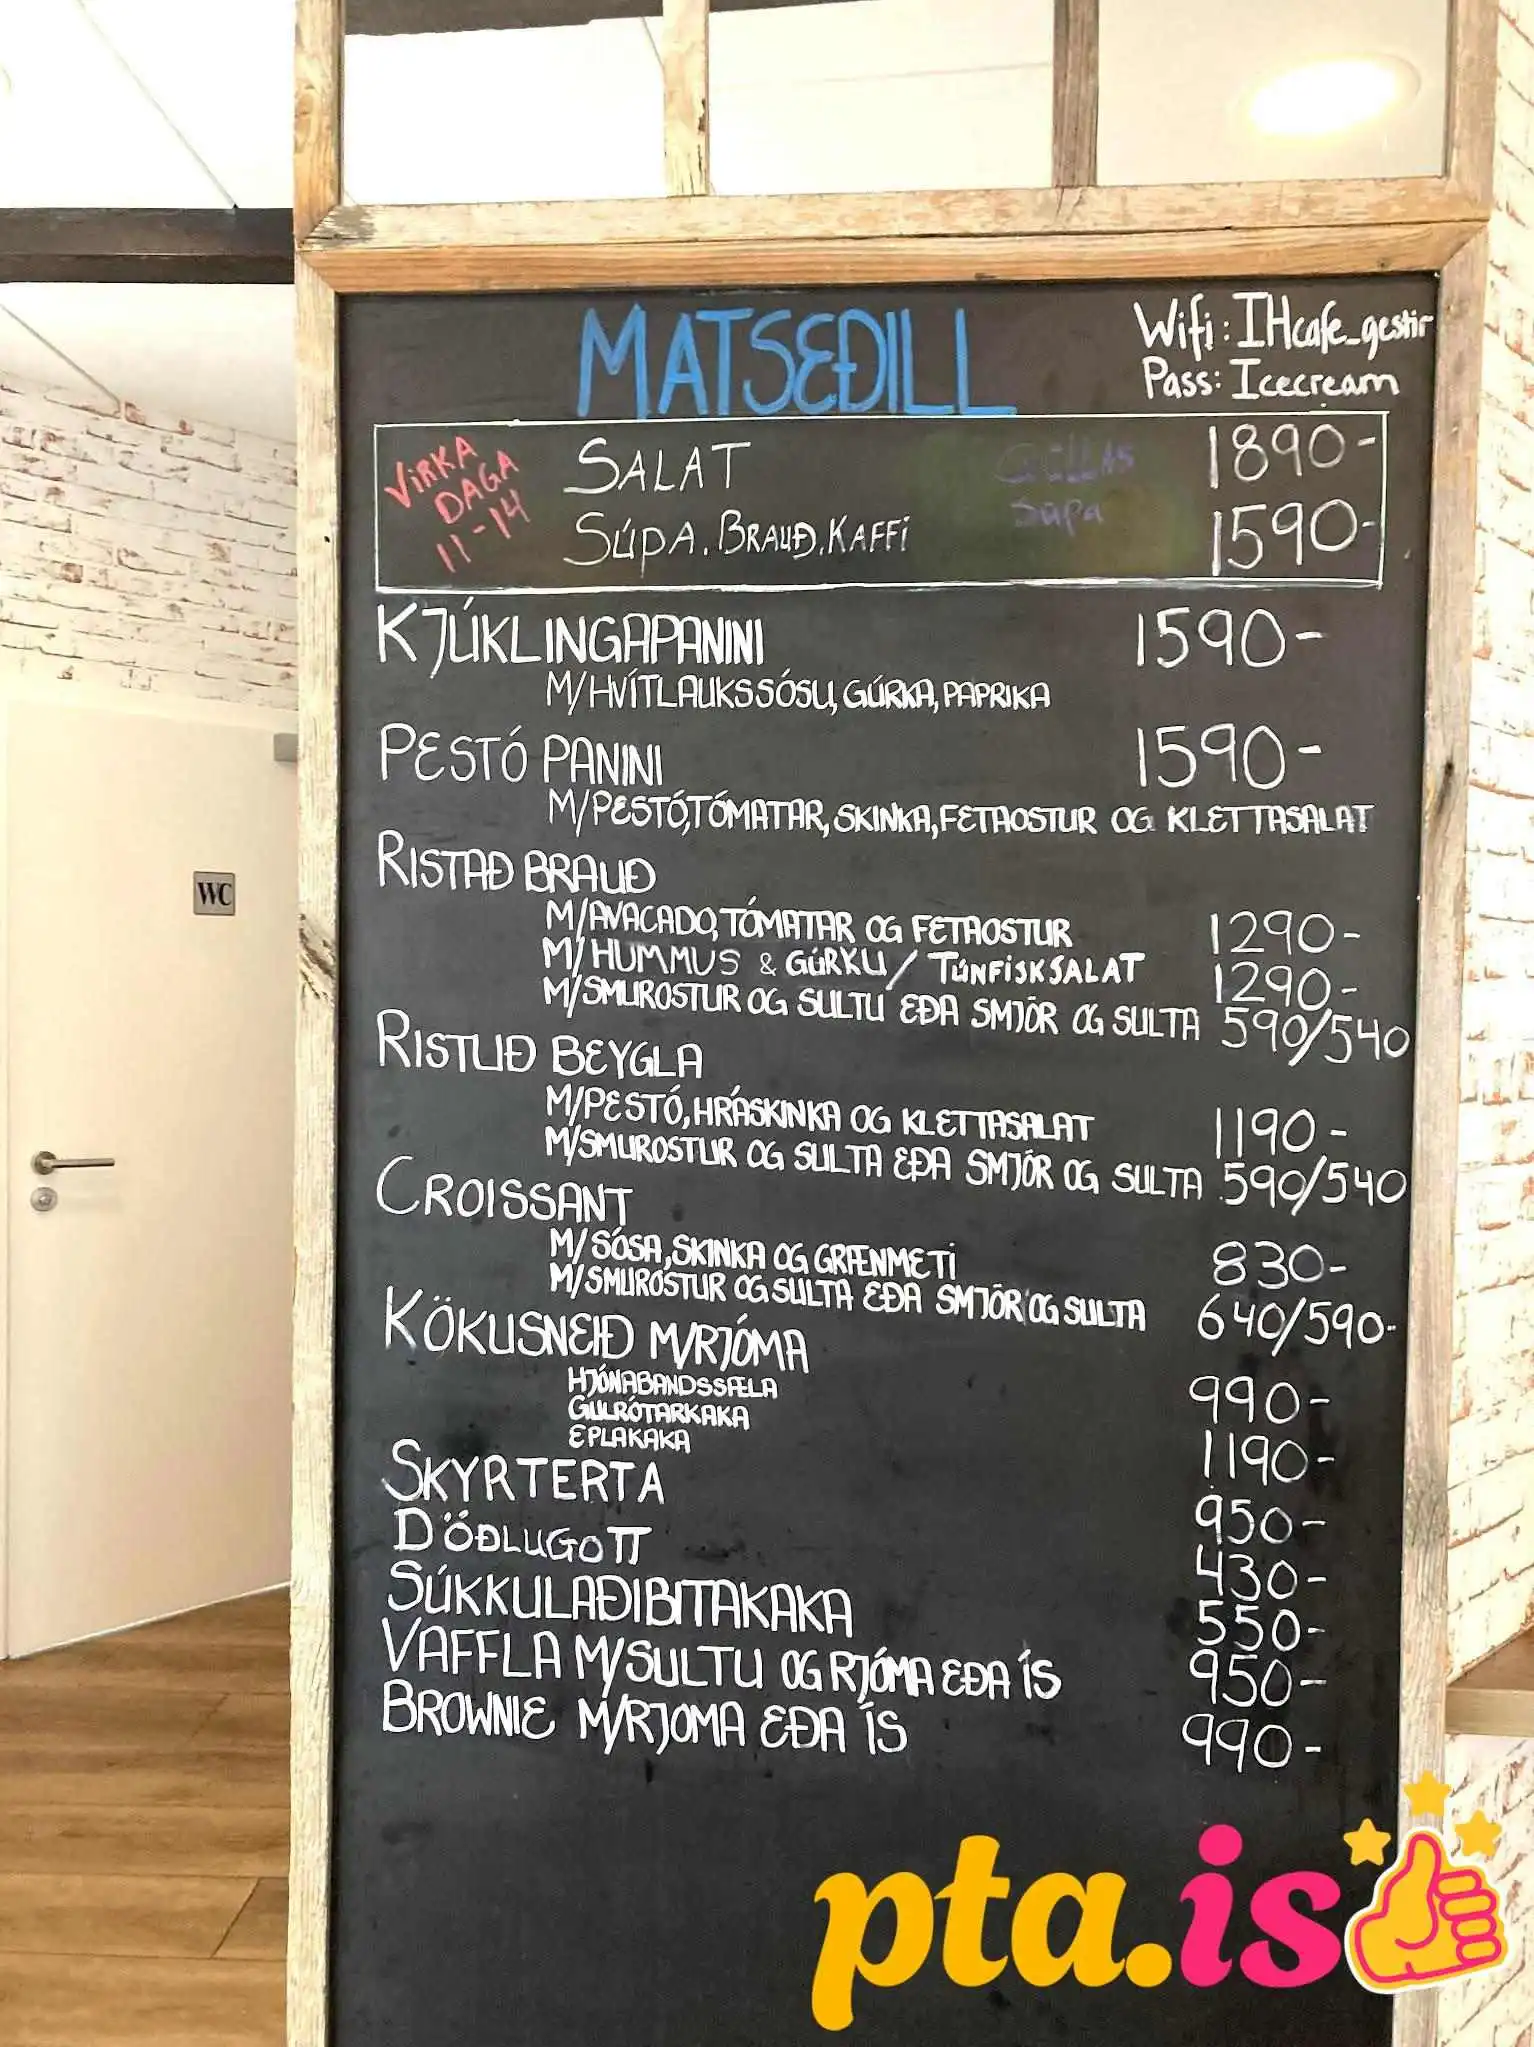 MATSEÐILL
Wifi: IHcafe_gestir
Pass: Icecream
VIRKA DAGA 11-14
SALAT 1890-
SÚPA, BRAUÐ, KAFFI Súpa 1590-
KJÚKLINGAPANINI 1590-
M/HVÍTLAUKSSÓSU, GÚRKA, PAPRIKA
PESTÓ PANINI 1590-
M/PESTÓ, TÓMATAR, SKINKA, FETAOSTUR OG KLETTASALAT
RISTAÐ BRAUÐ
M/AVACADO, TÓMATAR OG FETAOSTUR 1290-
M/HUMMUS & GÚRKU / TÚNFISKSALAT 1290-
M/SMUROSTUR OG SULTU EÐA SMJÖR OG SULTA 590/540
RISTUÐ BEYGLA
M/PESTÓ, HRÁSKINKA OG KLETTASALAT 1190-
M/SMUROSTUR OG SULTA EÐA SMJÖR OG SULTA 590/540
CROISSANT
M/SÓSA, SKINKA OG GRÆNMETI 830-
M/SMUROSTUR OG SULTA EÐA SMJÖR OG SULTA 640/590-
KÖKUSNEIÐ M/RJÓMA
HJÓNABANDSSÆLA 990-
GULRÓTARKAKA
EPLAKAKA 1190-
SKYRTERTA 950-
DÖÐLUGOTT 430-
SÚKKULAÐIBITAKAKA 550-
VAFFLA M/SULTU OG RJÓMA EÐA ÍS 950-
BROWNIE M/RJOMA EÐA ÍS 990-
WC
pta.is